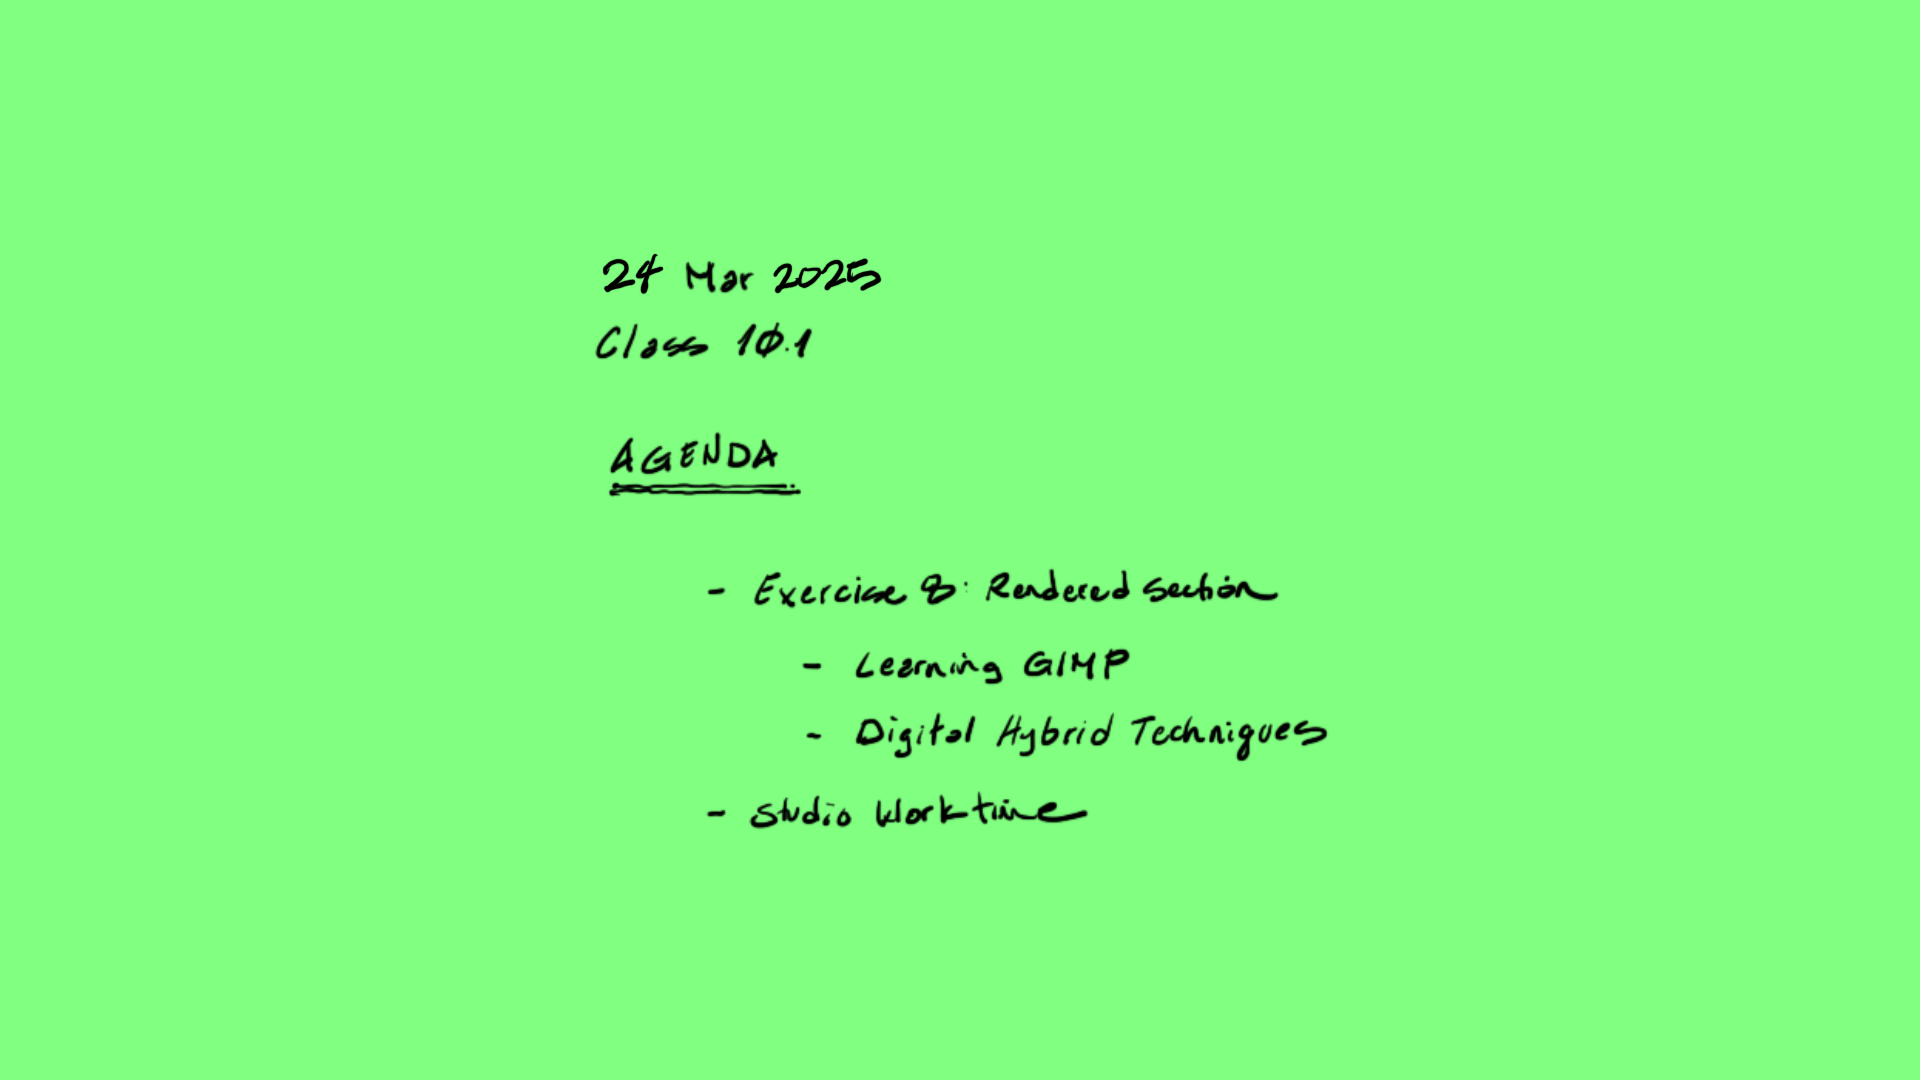 24 Mar 2025
Class 10.1
AGENDA
- Exercise 8: Rendered Section
- Learning GIMP
- Digital Hybrid Techniques
- Studio Work time